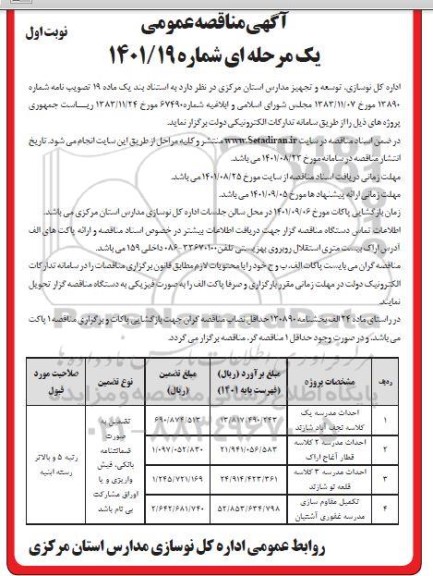 آگهی مناقصه عمومی
نوبت اول
یک مرحله ای شماره ۱۴۰۱/۱۹
اداره کل نوسازی، توسعه و تجهیز مدارس استان مرکزی در نظر دارد به استناد بند یک ماده ۱۹ تصویب نامه شماره
۱۳۸۹۰ مورخ ۱۳۸۳/۱۱/۰۷ مجلس شورای اسلامی و ابلاغیه شماره ۶۷۴۹۰ مورخ ۱۳۸۳/۱۱/۲۴ ریاست جمهوری
پروژه های ذیل را از طریق سامانه تدارکات الکترونیکی دولت برگزار نماید.
در ضمن اسناد مناقصه در سایت www.Setadiran.ir منتشر و کلیه مراحل از طریق این سایت انجام می شود. تاریخ
انتشار مناقصه در سامانه مورخ ۱۴۰۱/۰۸/۲۲ می باشد.
مهلت زمانی دریافت اسناد مناقصه از سایت مورخ ۱۴۰۱/۰۸/۲۵ می باشد.
مهلت زمانی ارائه پیشنهاد ها مورخ ۱۴۰۱/۰۹/۰۵ می باشد.
زمان بازگشایی پاکات مورخ ۱۴۰۱/۰۹/۰۶ در محل سالن جلسات اداره کل نوسازی مدارس استان مرکزی می باشد.
اطلاعات تماس دستگاه مناقصه گزار جهت دریافت اطلاعات بیشتر در خصوص اسناد مناقصه و ارائه پاکت های الف
آدرس اراک بیست متری استقلال روبروی بهزیستی تلفن ۳۳۶۷۰۱۰۰-۰۸۶ داخلی ۱۵۹ می باشد.
مناقصه گران می بایست پاکات الف، ب و ج خود را با محتویات لازم مطابق قانون برگزاری مناقصات را در سامانه تدارکات
الکترونیک دولت در مهلت زمانی مقرر بارگزاری و صرفا پاکت الف را به صورت فیزیکی به دستگاه مناقصه گزار تحویل
نمایند.
در راستای ماده ۲۴ الف بخشنامه ۱۳۰۸۹۰ حداقل نصاب مناقصه گران جهت بازگشایی پاکات و برگزاری مناقصه ۱ پاکت
می باشد. و در صورت وجود حداقل ۱ مناقصه گر، مناقصه برگزار می گردد.
ردیف مشخصات پروژه مبلغ برآورد (ریال) (فهرست پایه ۱۴۰۱) مبلغ تضمین (ریال) نوع تضمین صلاحیت مورد قبول
۱ احداث مدرسه یک کلاسه نجف آباد شازند ۱۳/۸۱۷/۴۹۰/۲۴۳ ۶۹۰/۸۷۴/۵۱۳
۲ احداث مدرسه ۲ کلاسه قطار آغاج اراک ۲۱/۹۴۱/۰۵۶/۵۸۳ ۱/۰۹۷/۰۵۲/۸۳۰
۳ احداث مدرسه ۳ کلاسه قلعه نو شازند ۲۴/۹۱۴/۴۲۳/۳۶۱ ۱/۲۴۵/۷۲۱/۱۶۹
۴ تکمیل مقاوم سازی مدرسه غفوری آشتیان ۵۲/۸۵۳/۶۳۴/۷۹۸ ۲/۶۴۲/۶۸۱/۷۴۰
تضمین به صورت ضمانتنامه بانکی، فیش واریزی و یا اوراق مشارکت بی نام باشد
رتبه ۵ و بالاتر رسته ابنیه
روابط عمومی اداره کل نوسازی مدارس استان مرکزی